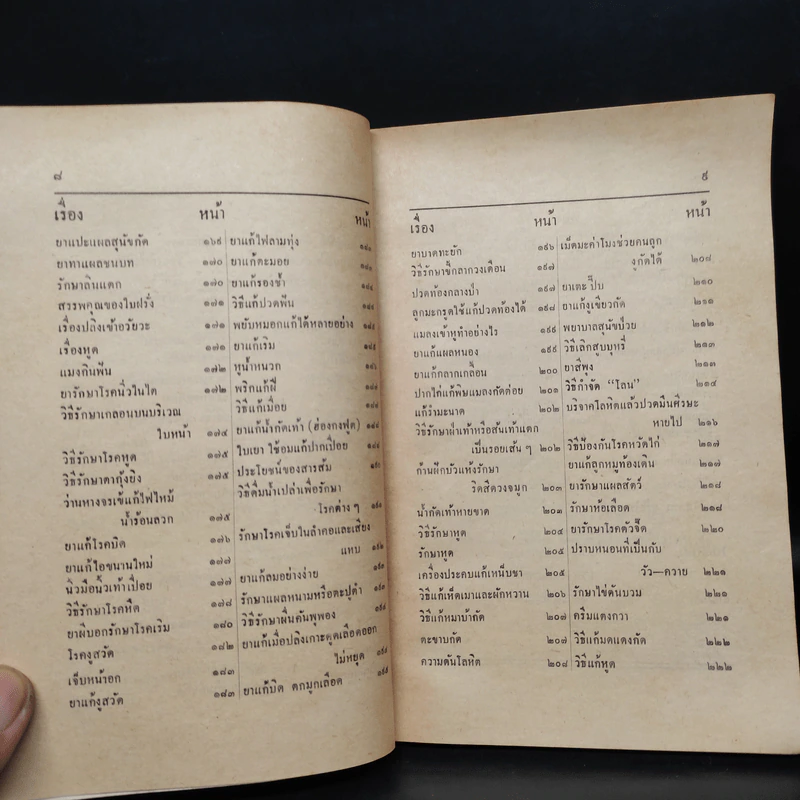 ๘
เรื่อง หน้า
ยาแปะแผลสุนัขกัด ๑๖๙
ยาทาแผลชนบท ๑๗๐
รักษาลิ้นแตก ๑๗๐
สรรพคุณของใบฝรั่ง ๑๗๑
เรื่องปลิงเข้าอวัยวะ ๑๗๑
เรื่องหูด ๑๗๑
แมงกินฟัน ๑๗๒
ยารักษาโรคนิ่วในไต ๑๗๒
วิธีรักษาเกลื้อนบนบริเวณ
ใบหน้า ๑๗๔
วิธีรักษาโรคหูด ๑๗๕
วิธีรักษาตากุ้งยิง ๑๗๕
ว่านหางจรเข้แก้ไฟไหม้
น้ำร้อนลวก ๑๗๕
ยาแก้โรคบิด ๑๗๖
ยาแก้ไอขนานใหม่ ๑๗๗
นิ้วมือนิ้วเท้าเปื่อย ๑๗๗
วิธีรักษาโรคหืด ๑๗๘
ยาผีบอกรักษาโรคเริม ๑๘๐
โรคงูสวัด ๑๘๒
เจ็บหน้าอก ๑๘๓
ยาแก้งูสวัด ๑๘๓
หน้า
ยาแก้ไฟลามทุ่ง
ยาแก้ตะมอย
ยาแก้รองช้ำ
วิธีแก้ปวดฟัน
พยับหมอกแก้ได้หลายอย่าง
ยาแก้เริม
หูน้ำหนวก
พริกแก้ฝี
วิธีแก้เมื่อย
ยาแก้น้ำกัดเท้า (ฮ่องกงฟุต)
ใบเงาะ ใช้อมแก้ปากเปื่อย
ประโยชน์ของสารส้ม
วิธีดื่มน้ำเปล่าเพื่อรักษา
โรคต่าง ๆ
รักษาโรคเจ็บในลำคอและเสียง
แหบ
ยาแก้ลมอย่างง่าย
รักษาแผลหนามหรือตะปูตำ
วิธีรักษาผื่นคันพุพอง
ยาแก้เมื่อปลิงเกาะดูดเลือดออก
ไม่หยุด
ยาแก้บิด ตกมูกเลือด
๙
เรื่อง หน้า
ยาบาดทะยัก ๑๙๖
วิธีรักษาขี้กลากวงเดือน ๑๙๗
ปวดท้องกลางป่า ๑๙๗
ลูกมะกรูดใช้แก้ปวดท้องได้ ๑๙๘
แมลงเข้าหูทำอย่างไร ๑๙๙
ยาแก้แผลหนอง ๑๙๙
ยาแก้กลากเกลื้อน ๒๐๐
ปากไก่แก้พิษแมลงกัดต่อย ๒๐๑
แก้รำมะนาด ๒๐๒
วิธีรักษาฝ่าเท้าหรือส้นเท้าแตก
เป็นรอยเส้น ๆ ๒๐๒
ก้านฝักบัวแห้งรักษา
ริดสีดวงจมูก ๒๐๓
น้ำกัดเท้าหายขาด ๒๐๓
วิธีรักษาหูด ๒๐๔
รักษาหูด ๒๐๕
เครื่องประคบแก้เหน็บชา ๒๐๕
วิธีแก้เห็ดเมาและผักหวาน ๒๐๖
วิธีแก้หมาบ้ากัด ๒๐๗
ตะขาบกัด ๒๐๗
ความดันโลหิต ๒๐๘
หน้า
เม็ดมะค่าโมงช่วยคนถูก
งูกัดได้ ๒๐๘
ยาเตะปี๊บ ๒๑๐
ยาแก้งูเขียวกัด ๒๑๑
พยาบาลสุนัขป่วย ๒๑๒
วิธีเลิกสูบบุหรี่ ๒๑๓
ยาสีพุง ๒๑๓
วิธีกำจัด “โลน” ๒๑๔
บริจาคโลหิตแล้วปวดมึนศีรษะ
หายไป ๒๑๖
วิธีป้องกันโรคหวัดไก่ ๒๑๗
ยาแก้ลูกหมูท้องเดิน ๒๑๗
ยารักษาแผลสัตว์ ๒๑๘
รักษาห้อเลือด ๒๑๘
ยารักษาโรคตัวจี๊ด ๒๒๐
ปราบหนอนที่เป็นกับ
วัว—ควาย ๒๒๑
รักษาไข่ดันบวม ๒๒๑
ครีมแตงกวา ๒๒๑
วิธีแก้มดแดงกัด ๒๒๒
วิธีแก้หูด ๒๒๒